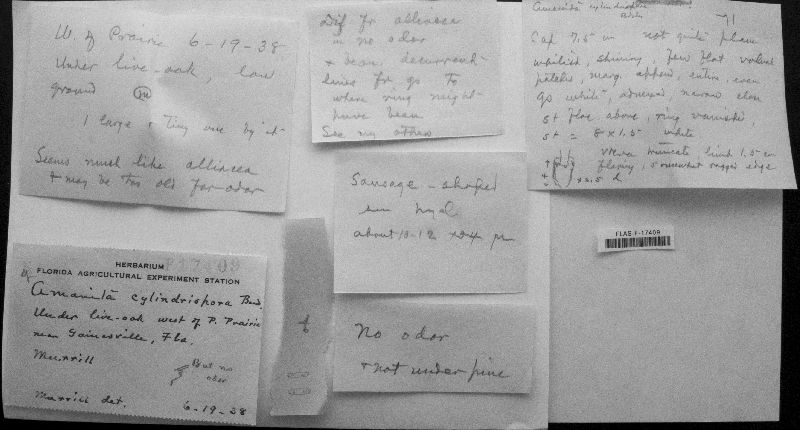 W. of Prairie 6-19-38
Under live-oak, low
ground
1 large & tiny one by it
Seems much like alliacea
& may be too old for odor
Dif fr alliacea
in no odor
& decurrent
lines fr go to
where ring might
have been
See my others
Amanita cylindrispora
Beds
71
Cap 7.5 cm not quite plane
whitish, shining, few flat volval
patches, marg. append, entire, even
Go white, adnexed, narrow close
st floc above, ring vanished,
st = 8 x 1.5 white
Volva truncate limb 1.5 cm
fleshy, somewhat ragged edge
x 2.5 d
Sausage-shaped
sm hyal
about 10-12 x 4 µ
No odor
& not under pine
FLAS F-17409
F17409
HERBARIUM
FLORIDA AGRICULTURAL EXPERIMENT STATION
Amanita cylindrispora Bea.
Under live-oak west of P. Prairie
near Gainesville, Fla.
Murrill
But no
odor
Murrill det. 6-19-38